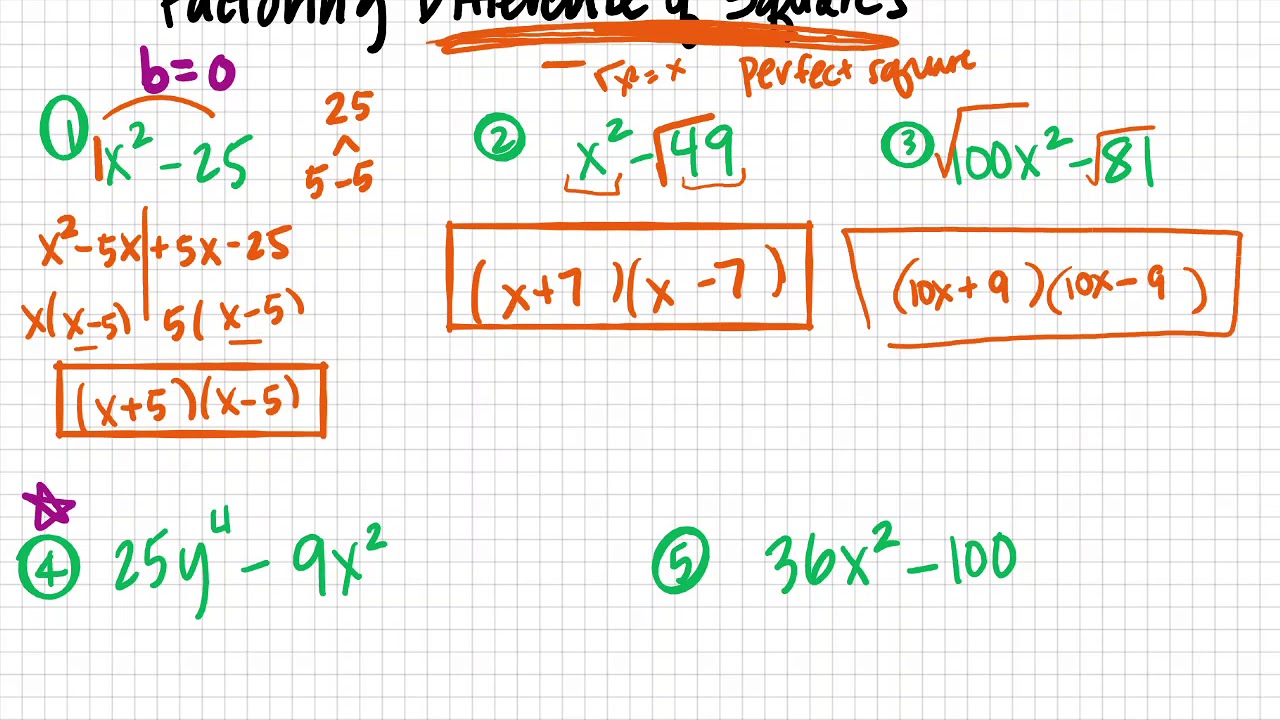 Factoring Difference of Squares
b=0
√x²=x perfect square
① 1x² - 25
25
5 -5
x² - 5x + 5x - 25
x(x-5) 5(x-5)
(x+5)(x-5)
② x² - √49
(x+7)(x-7)
③ √100x² - √81
(10x+9)(10x-9)
④ 25y⁴ - 9x²
⑤ 36x² - 100